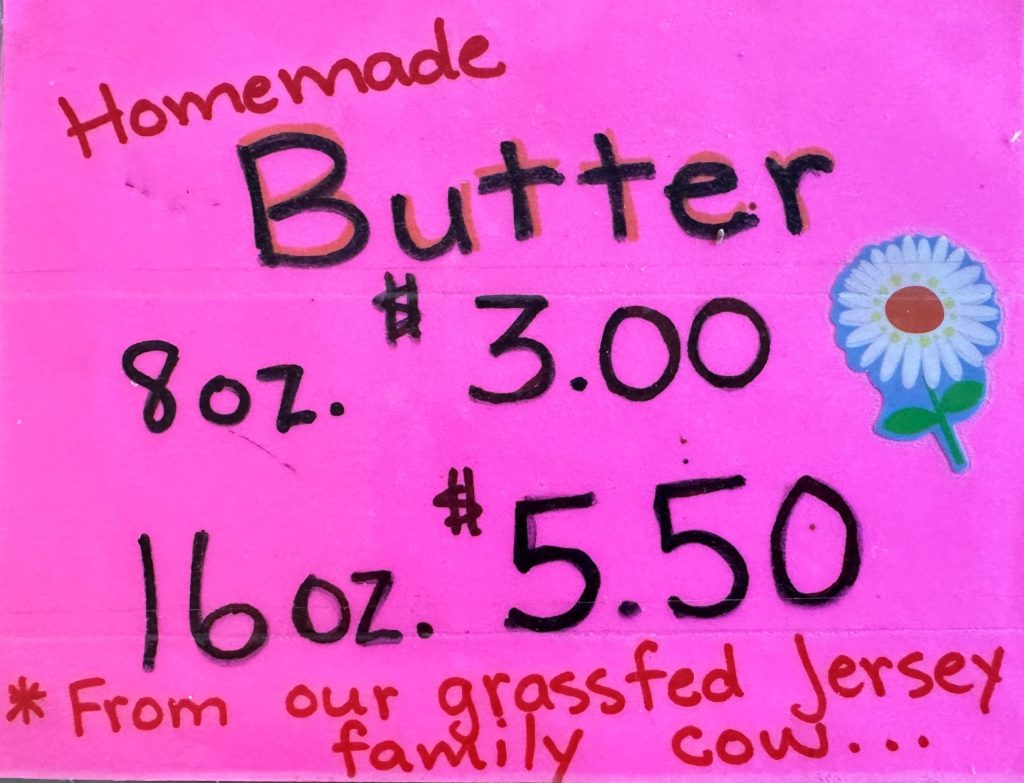 Homemade
Butter
8oz. $3.00
16oz. $5.50
* From our grassfed Jersey
family cow...